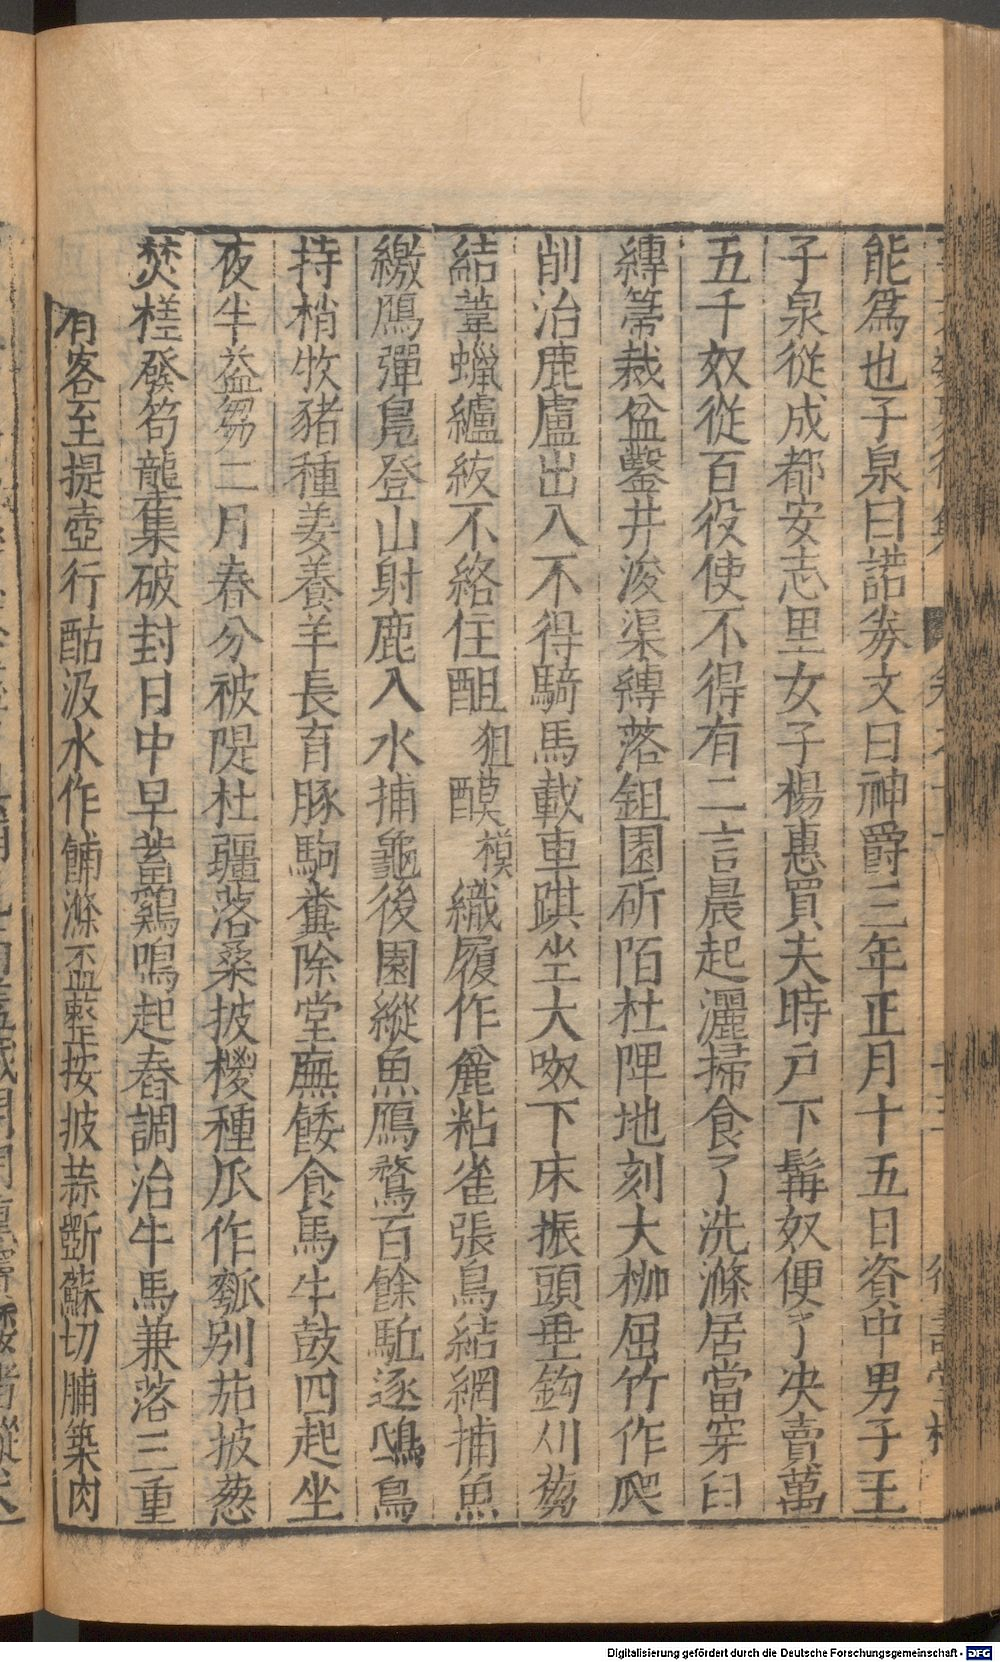 能爲也子泉曰諾劵文曰神爵三年正月十五日資中男子王
子泉從成都安志里女子楊惠買夫時戸下髯奴便了决賣萬
五千奴從百役使不得有二言晨起灑掃食了洗滌居當穿臼
縛箒裁盆鑿井浚渠縛落鉏園斫陌杜陴地刻大枷屈竹作爬
削治鹿盧出入不得騎馬載車踑坐大呶下床振頭垂鈎刈芻
結葦蠟纑紱不絡住酤 狙 醭 模 織履作麄粘雀張鳥結網捕魚
繳鴈彈鳧登山射鹿入水捕龜後園縱魚鴈鶩百餘駈逐鴟鳥
持梢牧豬種姜養羊長育豚駒糞除堂廡餧食馬牛鼓四起坐
夜半益芻二月春分被隄杜疆落桑披椶種瓜作瓠别茄披葱
焚槎發笱壟集破封日中早𤎅鷄鳴起舂調治牛馬兼落三重
有客至提壺行酤汲水作餔滌盃整按披蒜斷蘇切脯築肉
Digitalisierung gefördert durch die Deutsche Forschungsgemeinschaft - DFG